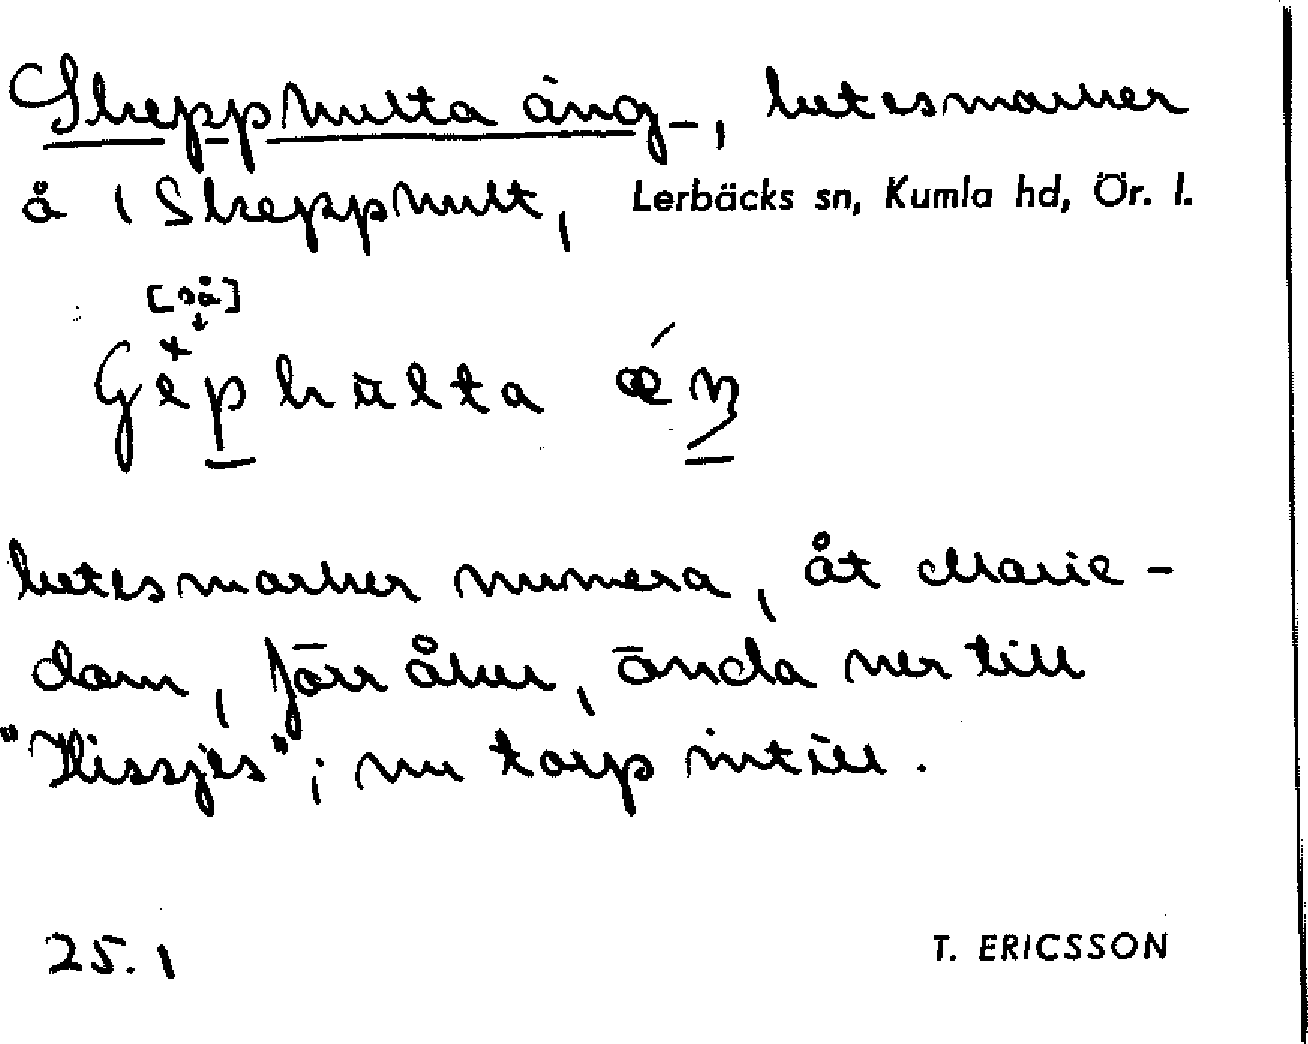 Skepphulta äng-, betesmarker
å 1 Skepphult, Lerbäcks sn, Kumla hd, Ör. l.
[så]
betesmarker numera, åt Marie-
dam, förr åker, ända ner till
"Kissjes"; nu torp intill.
25.1
T. ERICSSON